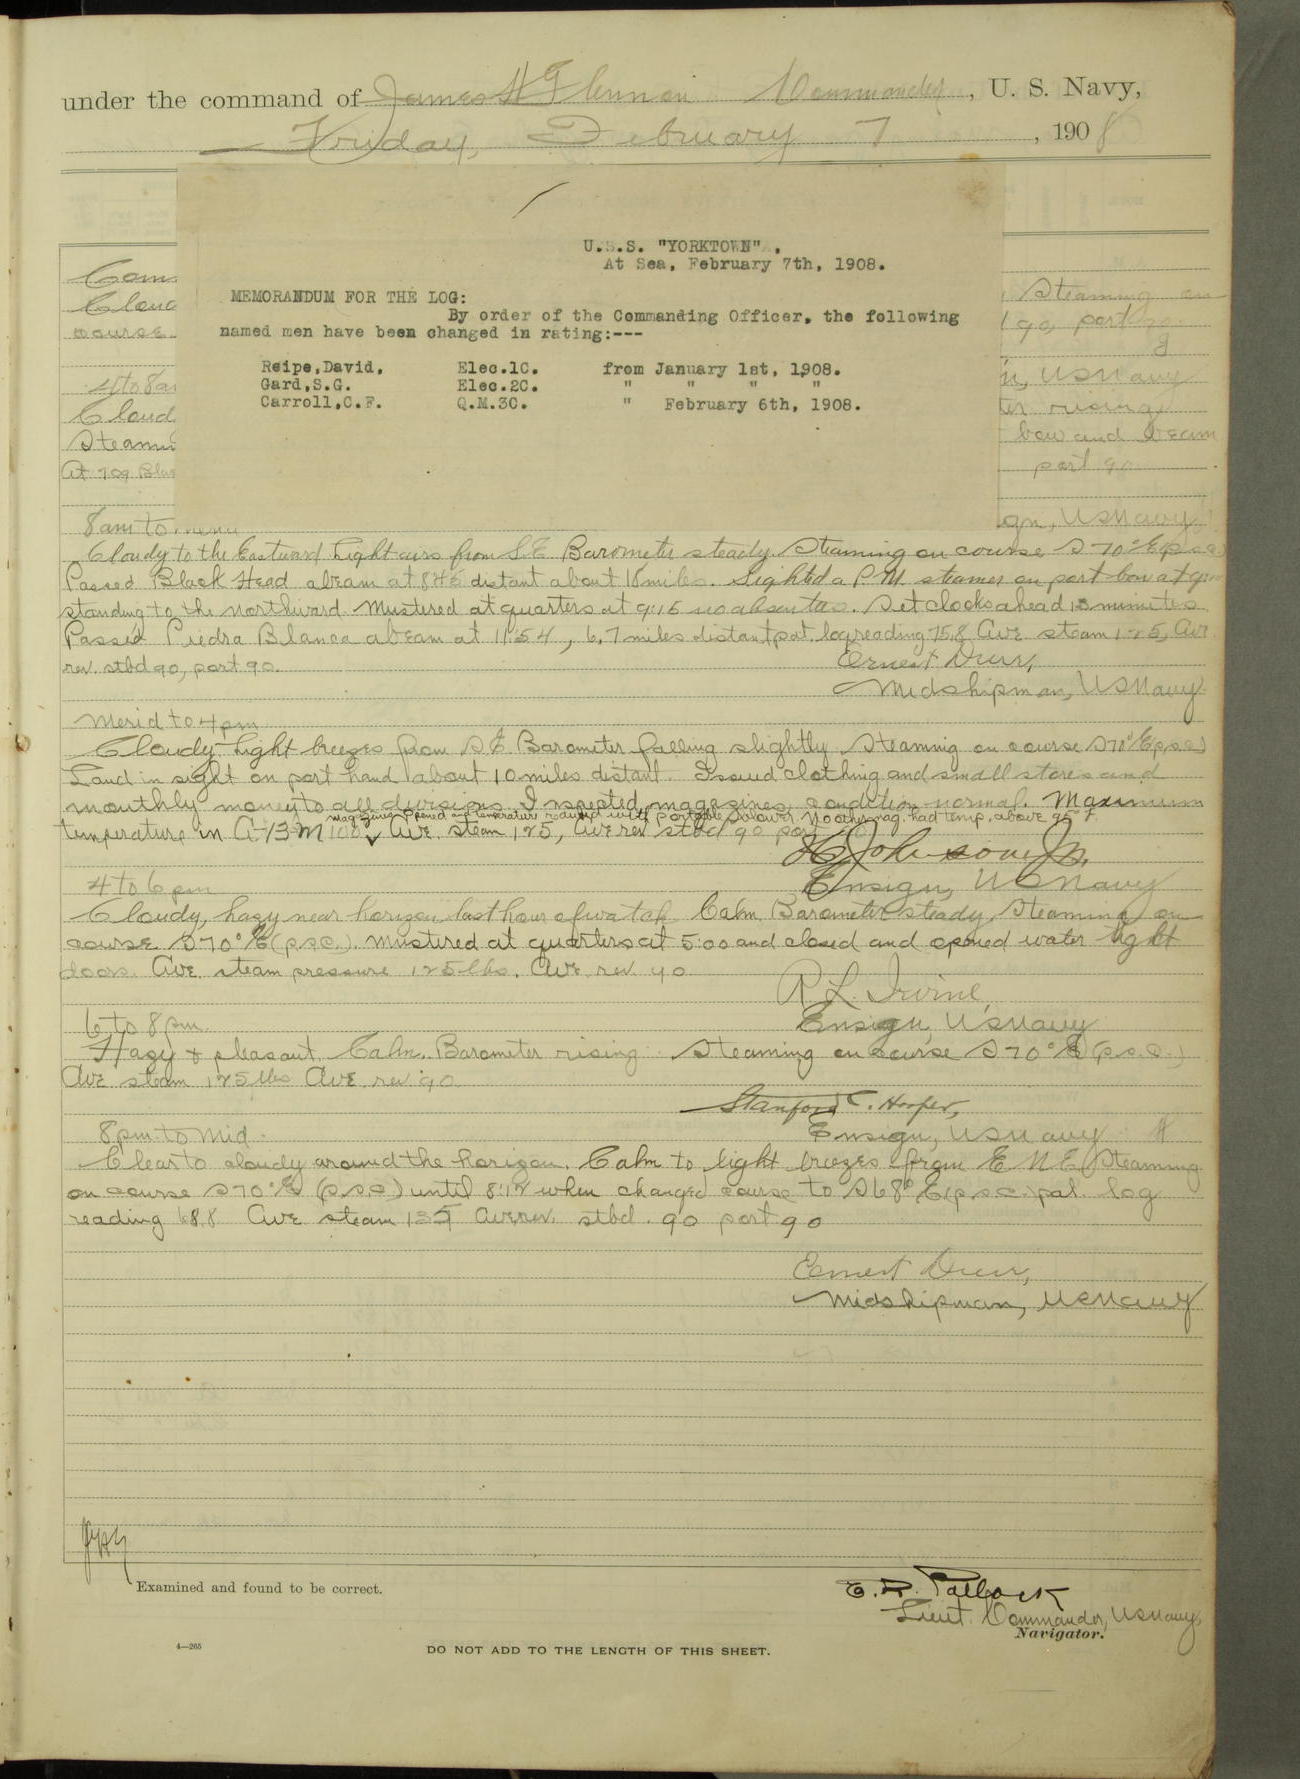 under the command of James H Glennon Commander, U. S. Navy,
Friday, February 7, 1908
U.S.S. "YORKTOWN".
At Sea, February 7th, 1908.
MEMORANDUM FOR THE LOG:
By order of the Commanding Officer, the following
named men have been changed in rating:---
Reipe,David, Elec.1C. from January 1st, 1908.
Gard,S.G. Elec.2C. " " " "
Carroll,C.F. Q.M.3C. " February 6th, 1908.
Steaming on
course 90, port
4 to 8 am USNavy
rising
bow and beam
At 7 09 port 90
8 am to USNavy
Cloudy to the Eastward Light airs from S.E. Barometer steady. Steaming on course S 70° E (p.s.c.)
Passed Black Head abeam at distant about 18 miles. Sighted a P.M. steamer on port bow at
standing to the northward. Mustered at quarters at 9:15 no absentees. Set clocks ahead minutes
Passed Piedra Blanca abeam at 11:54, 6.7 miles distant pat. log reading 75.8 Ave steam 125, Ave
rev. stbd 90, port 90.
Ernest Durr,
Midshipman, USNavy
Merid to 4 pm
Cloudy Light breezes from S.E. Barometer falling slightly. Steaming on course S 70° E (p.s.c.)
Land in sight on port hand about 10 miles distant. Issued clothing and small stores and
monthly money to all divisions. Inspected magazines, condition normal. Maximum
magazine opened and temperature reduced with portable blower. No other mag. had temp. above 95° F.
temperature in A-13-M 100, Ave. steam 125, Ave rev stbd 90 port
Johnson Jr.
Ensign, USNavy
4 to 6 pm
Cloudy, hazy near horizon last hour of watch. Calm. Barometer steady. Steaming on
course S 70° E (p.s.c.). Mustered at quarters at 5:00 and closed and opened water tight
doors. Ave. steam pressure 125 lbs. Ave. rev. 90
R L Irvine,
Ensign, USNavy
6 to 8 pm.
Hazy & pleasant. Calm. Barometer rising. Steaming on course S 70° E (p.s.c.)
Ave steam 125 lbs Ave. rev. 90
Stanford C. Hooper,
Ensign, USNavy
8 pm to Mid.
Clear to cloudy around the horizon. Calm to light breezes from E N E Steaming
on course S 70° E (p.s.c.) until 8:12 when changed course to S 68° E (p.s.c. pat. log
reading 68.8 Ave steam 135 Ave rev. stbd. 90 port 90
Ernest Durr,
Midshipman, USNavy
Examined and found to be correct.
E. R. Pollock
Lieut. Commander, USNavy,
Navigator.
4—265
DO NOT ADD TO THE LENGTH OF THIS SHEET.